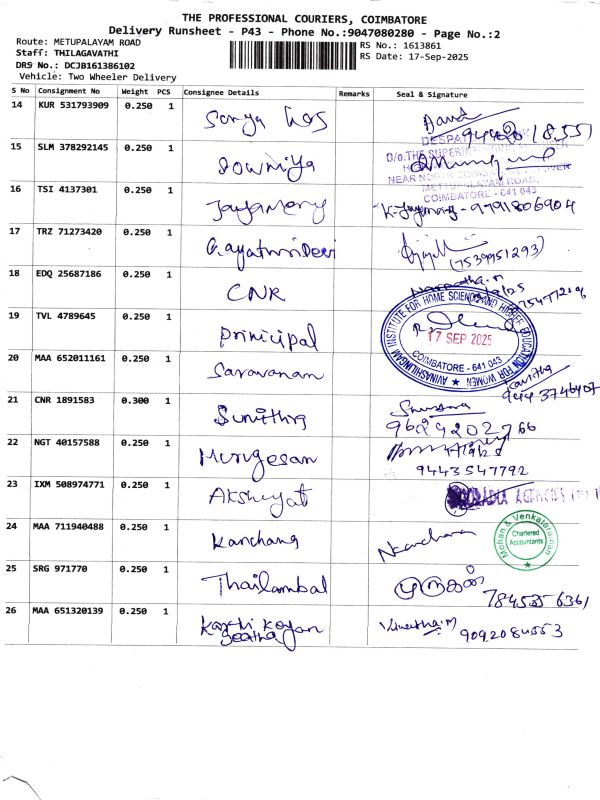 THE PROFESSIONAL COURIERS, COIMBATORE
Delivery Runsheet - P43 - Phone No.:9047080280 - Page No.:2
Route: METUPALAYAM ROAD
Staff: THILAGAVATHI
DRS No.: DCJB161386102
Vehicle: Two Wheeler Delivery
RS No.: 1613861
RS Date: 17-Sep-2025
S No Consignment No Weight PCS Consignee Details Remarks Seal & Signature
14 KUR 531793909 0.250 1
15 SLM 378292145 0.250 1 Sowmiya
NEAR
METTUPALAYAM ROAD,
COIMBATORE - 641 043
16 TSI 4137301 0.250 1 Jayamery 9791806904
17 TRZ 71273420 0.250 1 Gayathri Devi (7539951293)
18 EDQ 25687186 0.250 1 CNR
19 TVL 4789645 0.250 1 Prinicipal
AVINASHILINGAM INSTITUTE FOR HOME SCIENCE AND HIGHER EDUCATION FOR WOMEN
17 SEP 2025
COIMBATORE - 641 043
20 MAA 652011161 0.250 1 Saravanan Kavitha
9443746407
21 CNR 1891583 0.300 1 Sumithra
22 NGT 40157588 0.250 1 Murugesan
9443547792
23 IXM 508974771 0.250 1 Akshayat
24 MAA 711940488 0.250 1 Kanchana Kanchana
Mohan & Venkataraman
Chartered
Accountants
25 SRG 971770 0.250 1 Thailambal முருகன்
26 MAA 651320139 0.250 1 Vineetha.M 9092084553
Geetha